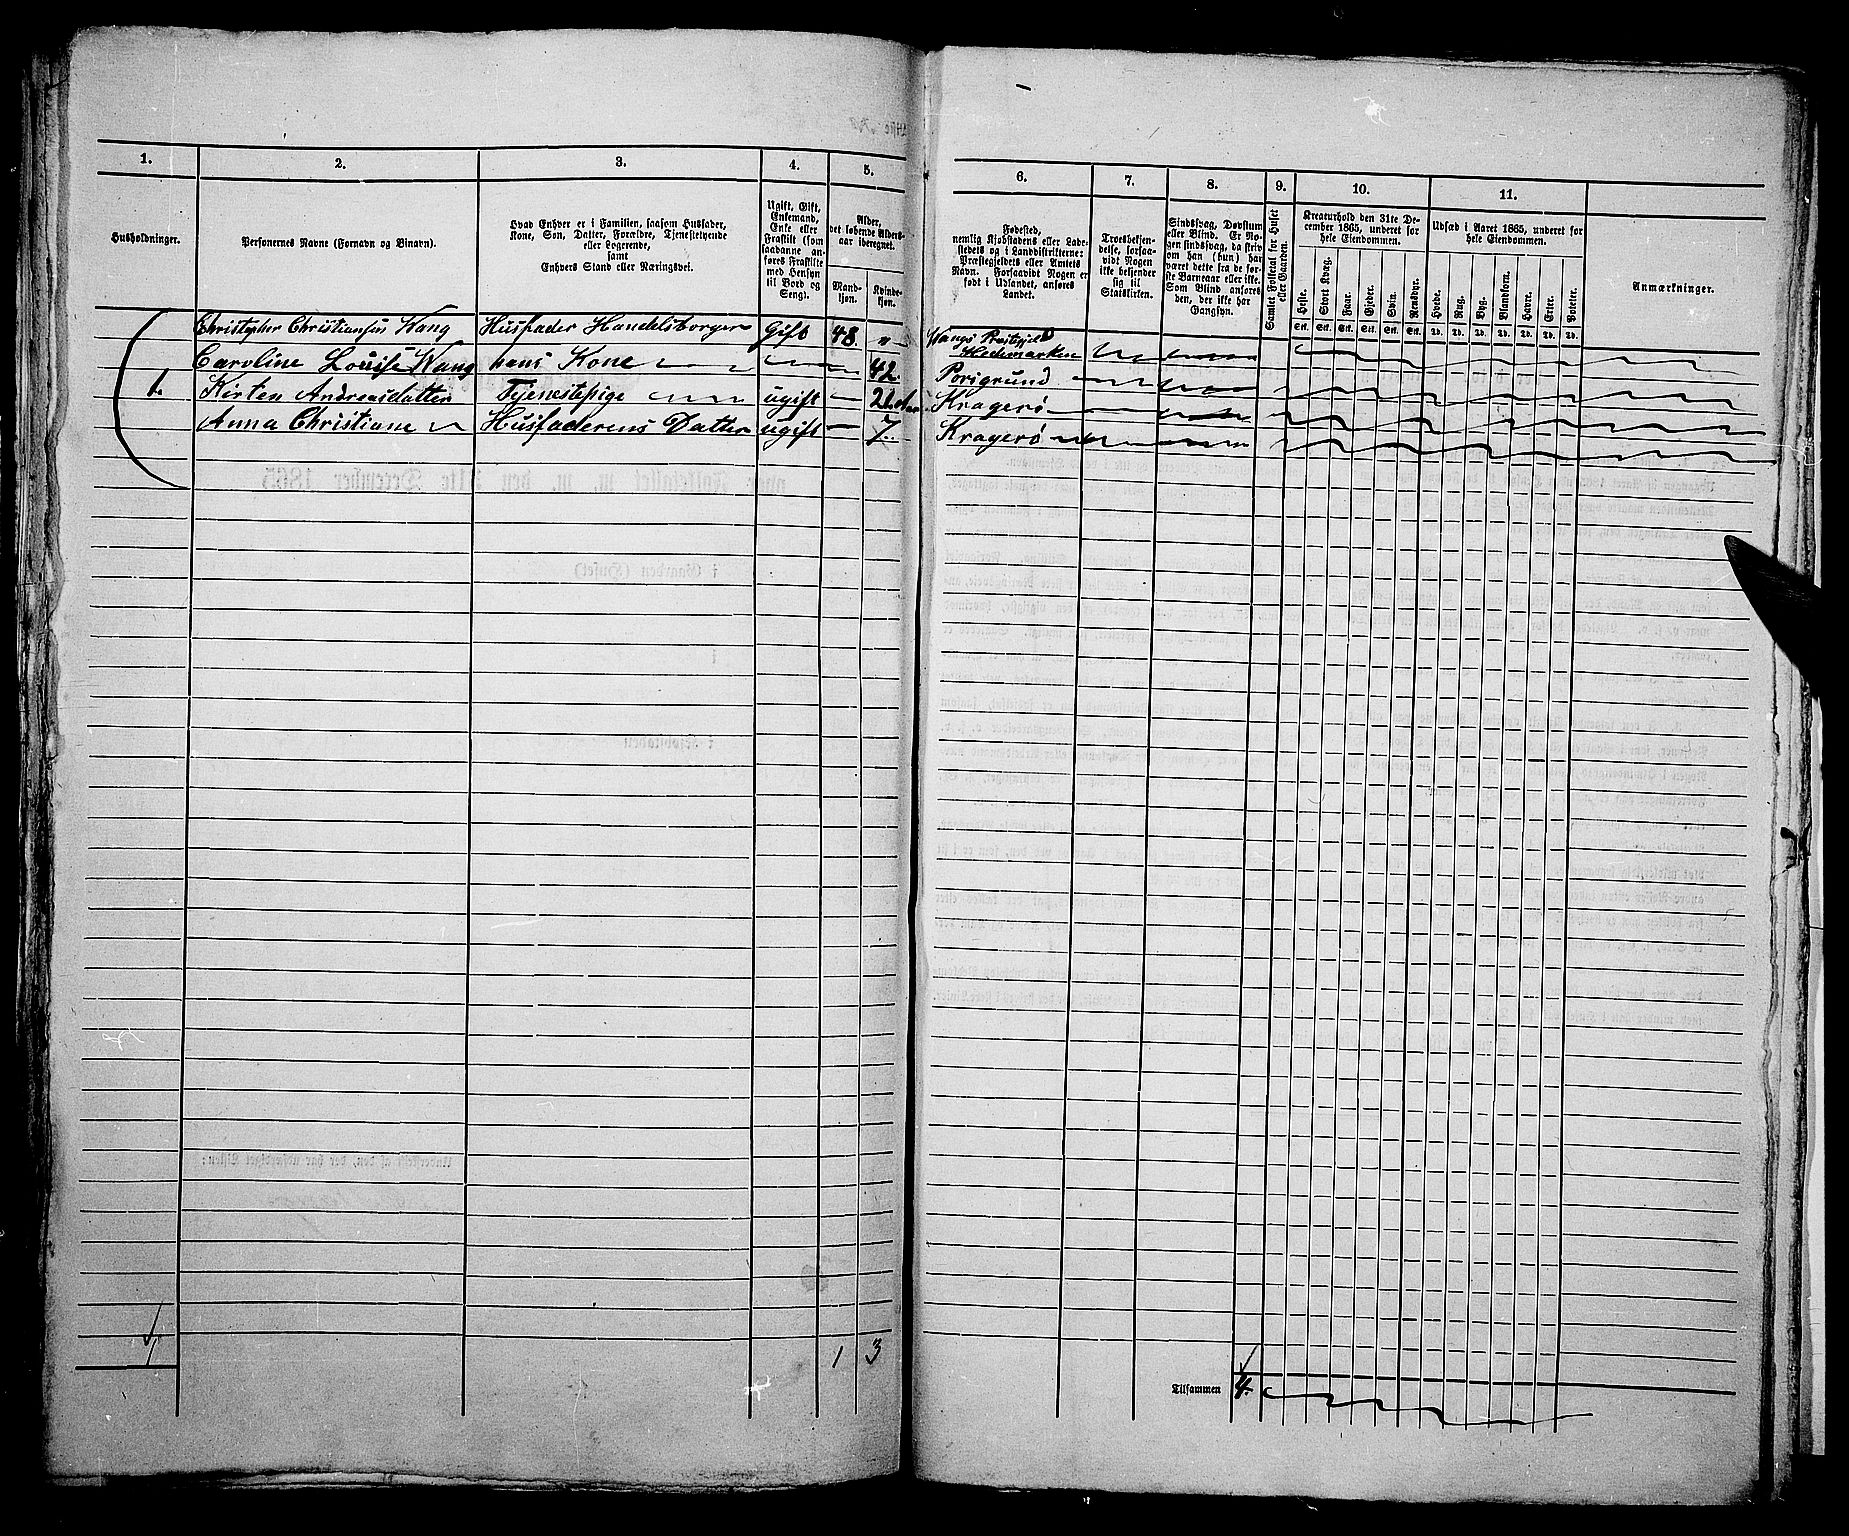 1.
2.
3.
4.
5.
6.
7.
8.
9.
10.
11.
Husholdninger.
Personernes Navne (Fornavn og Binavn).
Hvad Enhver er i Familien, saasom Husfader,
Kone, Søn, Datter, Forældre, Tjenestetyende
eller Logerende,
samt
Enhvers Stand eller Næringsvei.
Ugift, Gift,
Enkemand,
Enke eller
Fraskilt (som
saadanne an-
føres Fraskilte
med Hensyn
til Bord og
Seng).
Alder,
det løbende Alders-
aar iberegnet.
Mand-
kjøn.
Kvinde-
kjøn.
Fødested,
nemlig Kjøbstadens eller Lade-
stedets og i Landdistrikterne:
Præstegjeldets eller Amtets
Navn. Forsaavidt Nogen er
født i Udlandet, anføres
Landet.
Troesbekjen-
delse, forsaa-
vidt Nogen
ikke bekjender
sig til
Statskirken.
Sindssvag, Døvstum
eller Blind. Er No-
gen sindssvag, da skriv
om han (hun) har
været dette fra de før-
ste Barneaar eller ikke.
Som Blind anføres
den, der ikke har
Gangsyn.
Samlet Folketal for Huset
eller Gaarden.
Kreaturhold den 31te De-
cember 1865, underet for
hele Eiendommen.
Heste.
Stort Kvæg.
Faar.
Gjeder.
Svin.
Rensdyr.
Stk. Stk. Stk. Stk. Stk. Stk.
Udsæd i Aaret 1865, underet for
hele Eiendommen.
Hvede.
Rug.
Byg.
Blandkorn.
Havre.
Erter.
Poteter.
Td. Td. Td. Td. Td. Td. Td.
Anmærkninger.
Christopher Christiansen Wang Husfader Handelsborger Gift 48. " Wangs Præstegjeld
Hedemarken
Caroline Louise Wang hans Kone 42. Porsgrund
1. Kirsten Andreasdatter Tjenestepige ugift 21 Kragerø
Anna Christiane Husfaderens Datter ugift 7. Kragerø
1
1 3
Tilsammen 4.